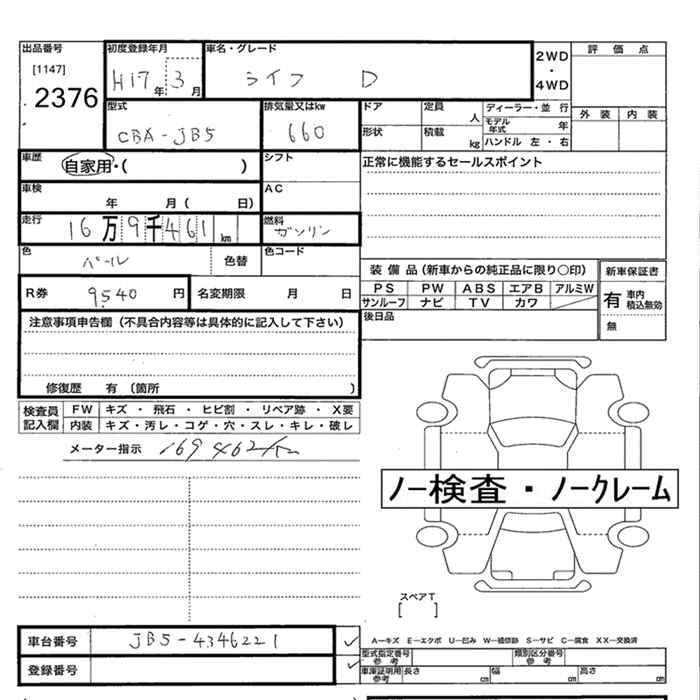 出品番号
[1147]
2376
初度登録年月
H17年 3月
車名・グレード
ライフ D
2WD
・
4WD
評価点
外装 内装
型式
CBA-JB5
排気量又はkw
660
ドア
形状
定員 人
積載 kg
ディーラー・並行
モデル年式 年
ハンドル 左・右
車歴
自家用・( )
シフト
AC
正常に機能するセールスポイント
車検
年 月( 日)
走行
16万9千461km
燃料
ガソリン
色
パール
色替
色コード
R券 9540円
名変期限 月 日
装備品(新車からの純正品に限り○印)
PS PW ABS エアB アルミW
サンルーフ ナビ TV カワ
後日品
新車保証書
有 車内積込無効
無
注意事項申告欄(不具合内容等は具体的に記入して下さい)
修復歴 有(箇所 )
検査員記入欄
FW キズ・飛石・ヒビ割・リペア跡・X要
内装 キズ・汚レ・コゲ・穴・スレ・キレ・破レ
メーター指示 169462km
ノー検査・ノークレーム
スペアT
[ ]
車台番号 JB5-4346221
登録番号
A―キズ E―エクボ U―凹み W―補修跡 S―サビ C―腐食 XX―交換済
型式指定番号 参考
類別区分番号 参考
車庫証明用 参考 長さ cm 幅 cm 高さ cm